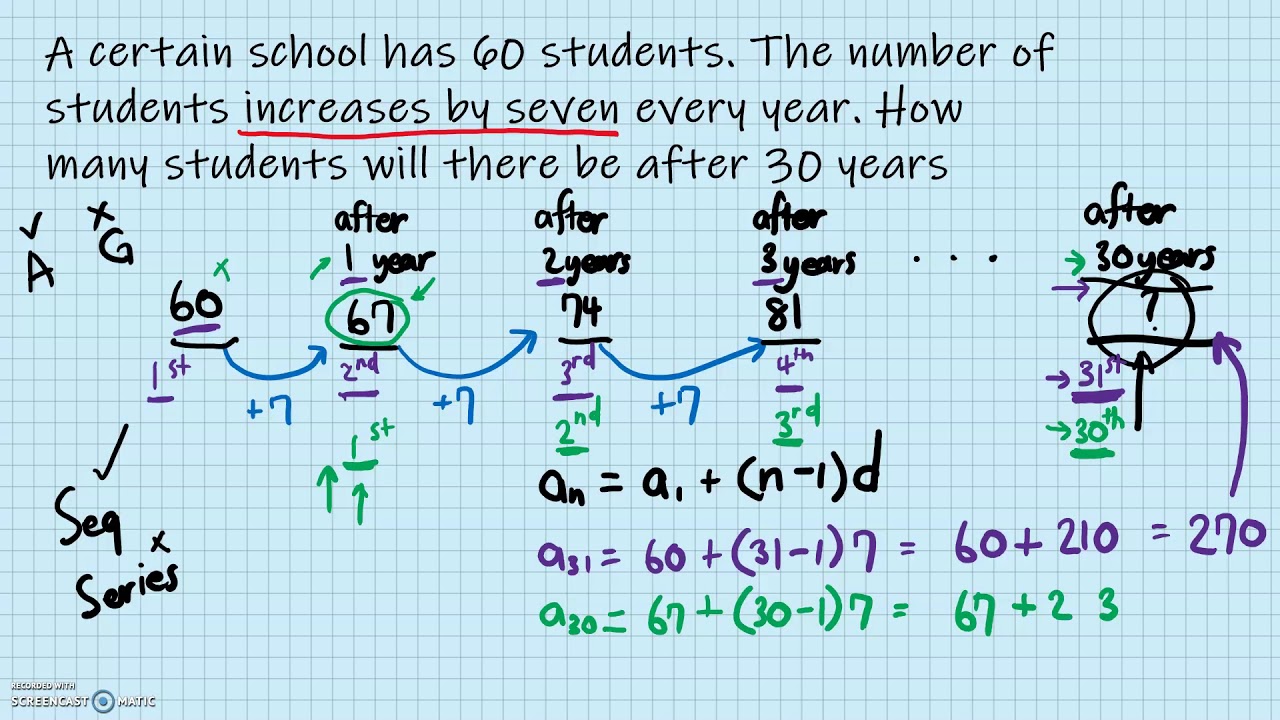 A certain school has 60 students. The number of
students increases by seven every year. How
many students will there be after 30 years
✓ × after after after after
A G 1 year 2 years 3 years . . . → 30 years
60 × 67 74 81 → ?
1st 2nd 3rd 4th → 31st
+7 +7 +7
1st 2nd 3rd → 30th
an = a1 + (n-1)d
Seq
a31 = 60 + (31-1)7 = 60 + 210 = 270
× Series
a30 = 67 + (30-1)7 = 67 + 2 3
RECORDED WITH
SCREENCAST MATIC